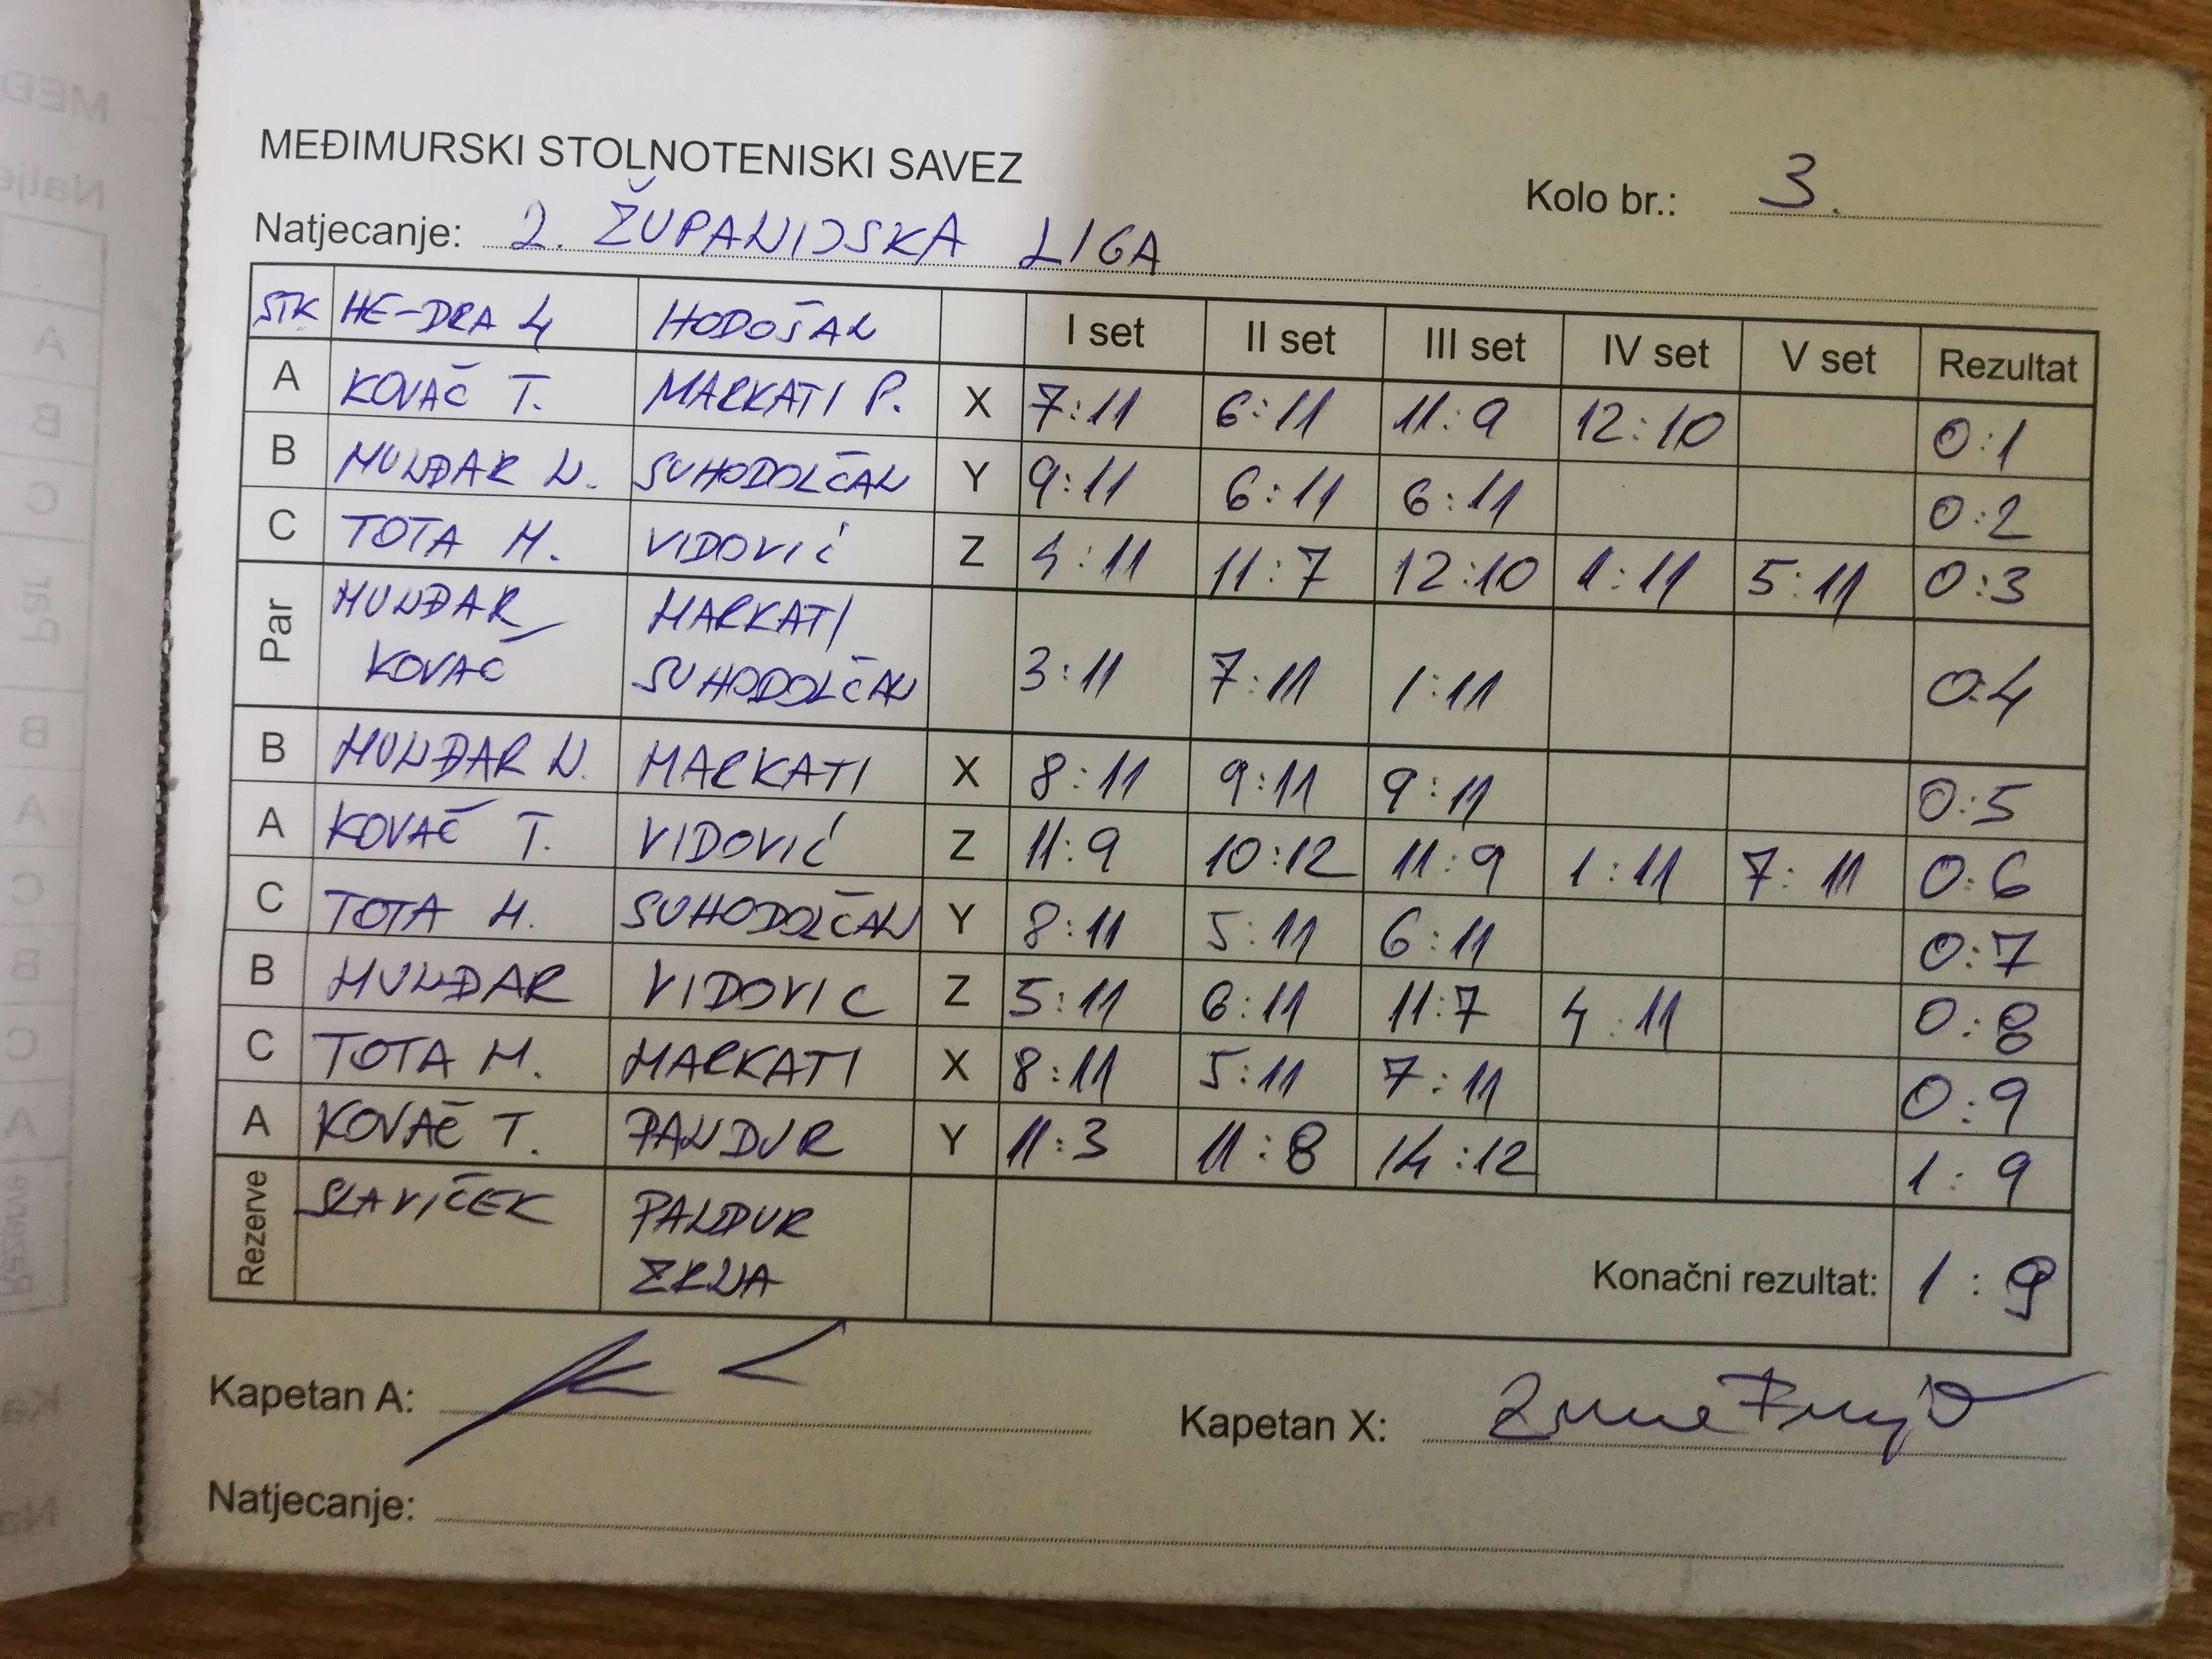 MEĐIMURSKI STOLNOTENISKI SAVEZ
Kolo br.: 3.
Natjecanje: 2. ŽUPANIJSKA LIGA
STK HE-DRA 4 HODOŠAN I set II set III set IV set V set Rezultat
A KOVAČ T. MARKATI P. X 7:11 6:11 11:9 12:10 0:1
B MUNĐAR N. SUHODOLČAN Y 9:11 6:11 6:11 0:2
C TOTA M. VIDOVIĆ Z 4:11 11:7 12:10 1:11 5:11 0:3
Par MUNĐAR KOVAČ MARKATI SUHODOLČAN 3:11 7:11 1:11 0:4
B MUNĐAR N. MARKATI X 8:11 9:11 9:11 0:5
A KOVAČ T. VIDOVIĆ Z 11:9 10:12 11:9 1:11 7:11 0:6
C TOTA M. SUHODOLČAN Y 8:11 5:11 6:11 0:7
B MUNĐAR VIDOVIC Z 5:11 6:11 11:7 4:11 0:8
C TOTA M. MARKATI X 8:11 5:11 7:11 0:9
A KOVAČ T. PANDUR Y 11:3 11:8 14:12 1:9
Rezerve SLAVIČEK PANDUR
ZRNA
Konačni rezultat: 1:9
Kapetan A:
Kapetan X:
Natjecanje: